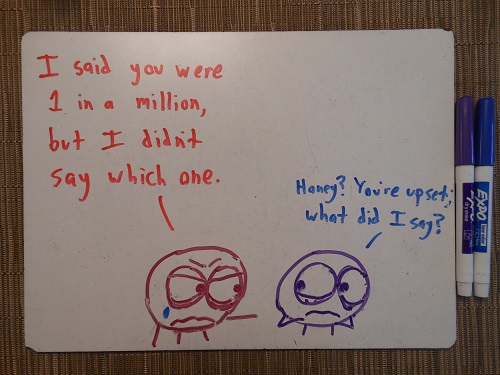 I said you were
1 in a million,
but I didn't
say which one.
Honey? You're upset;
what did I say?
EXPO